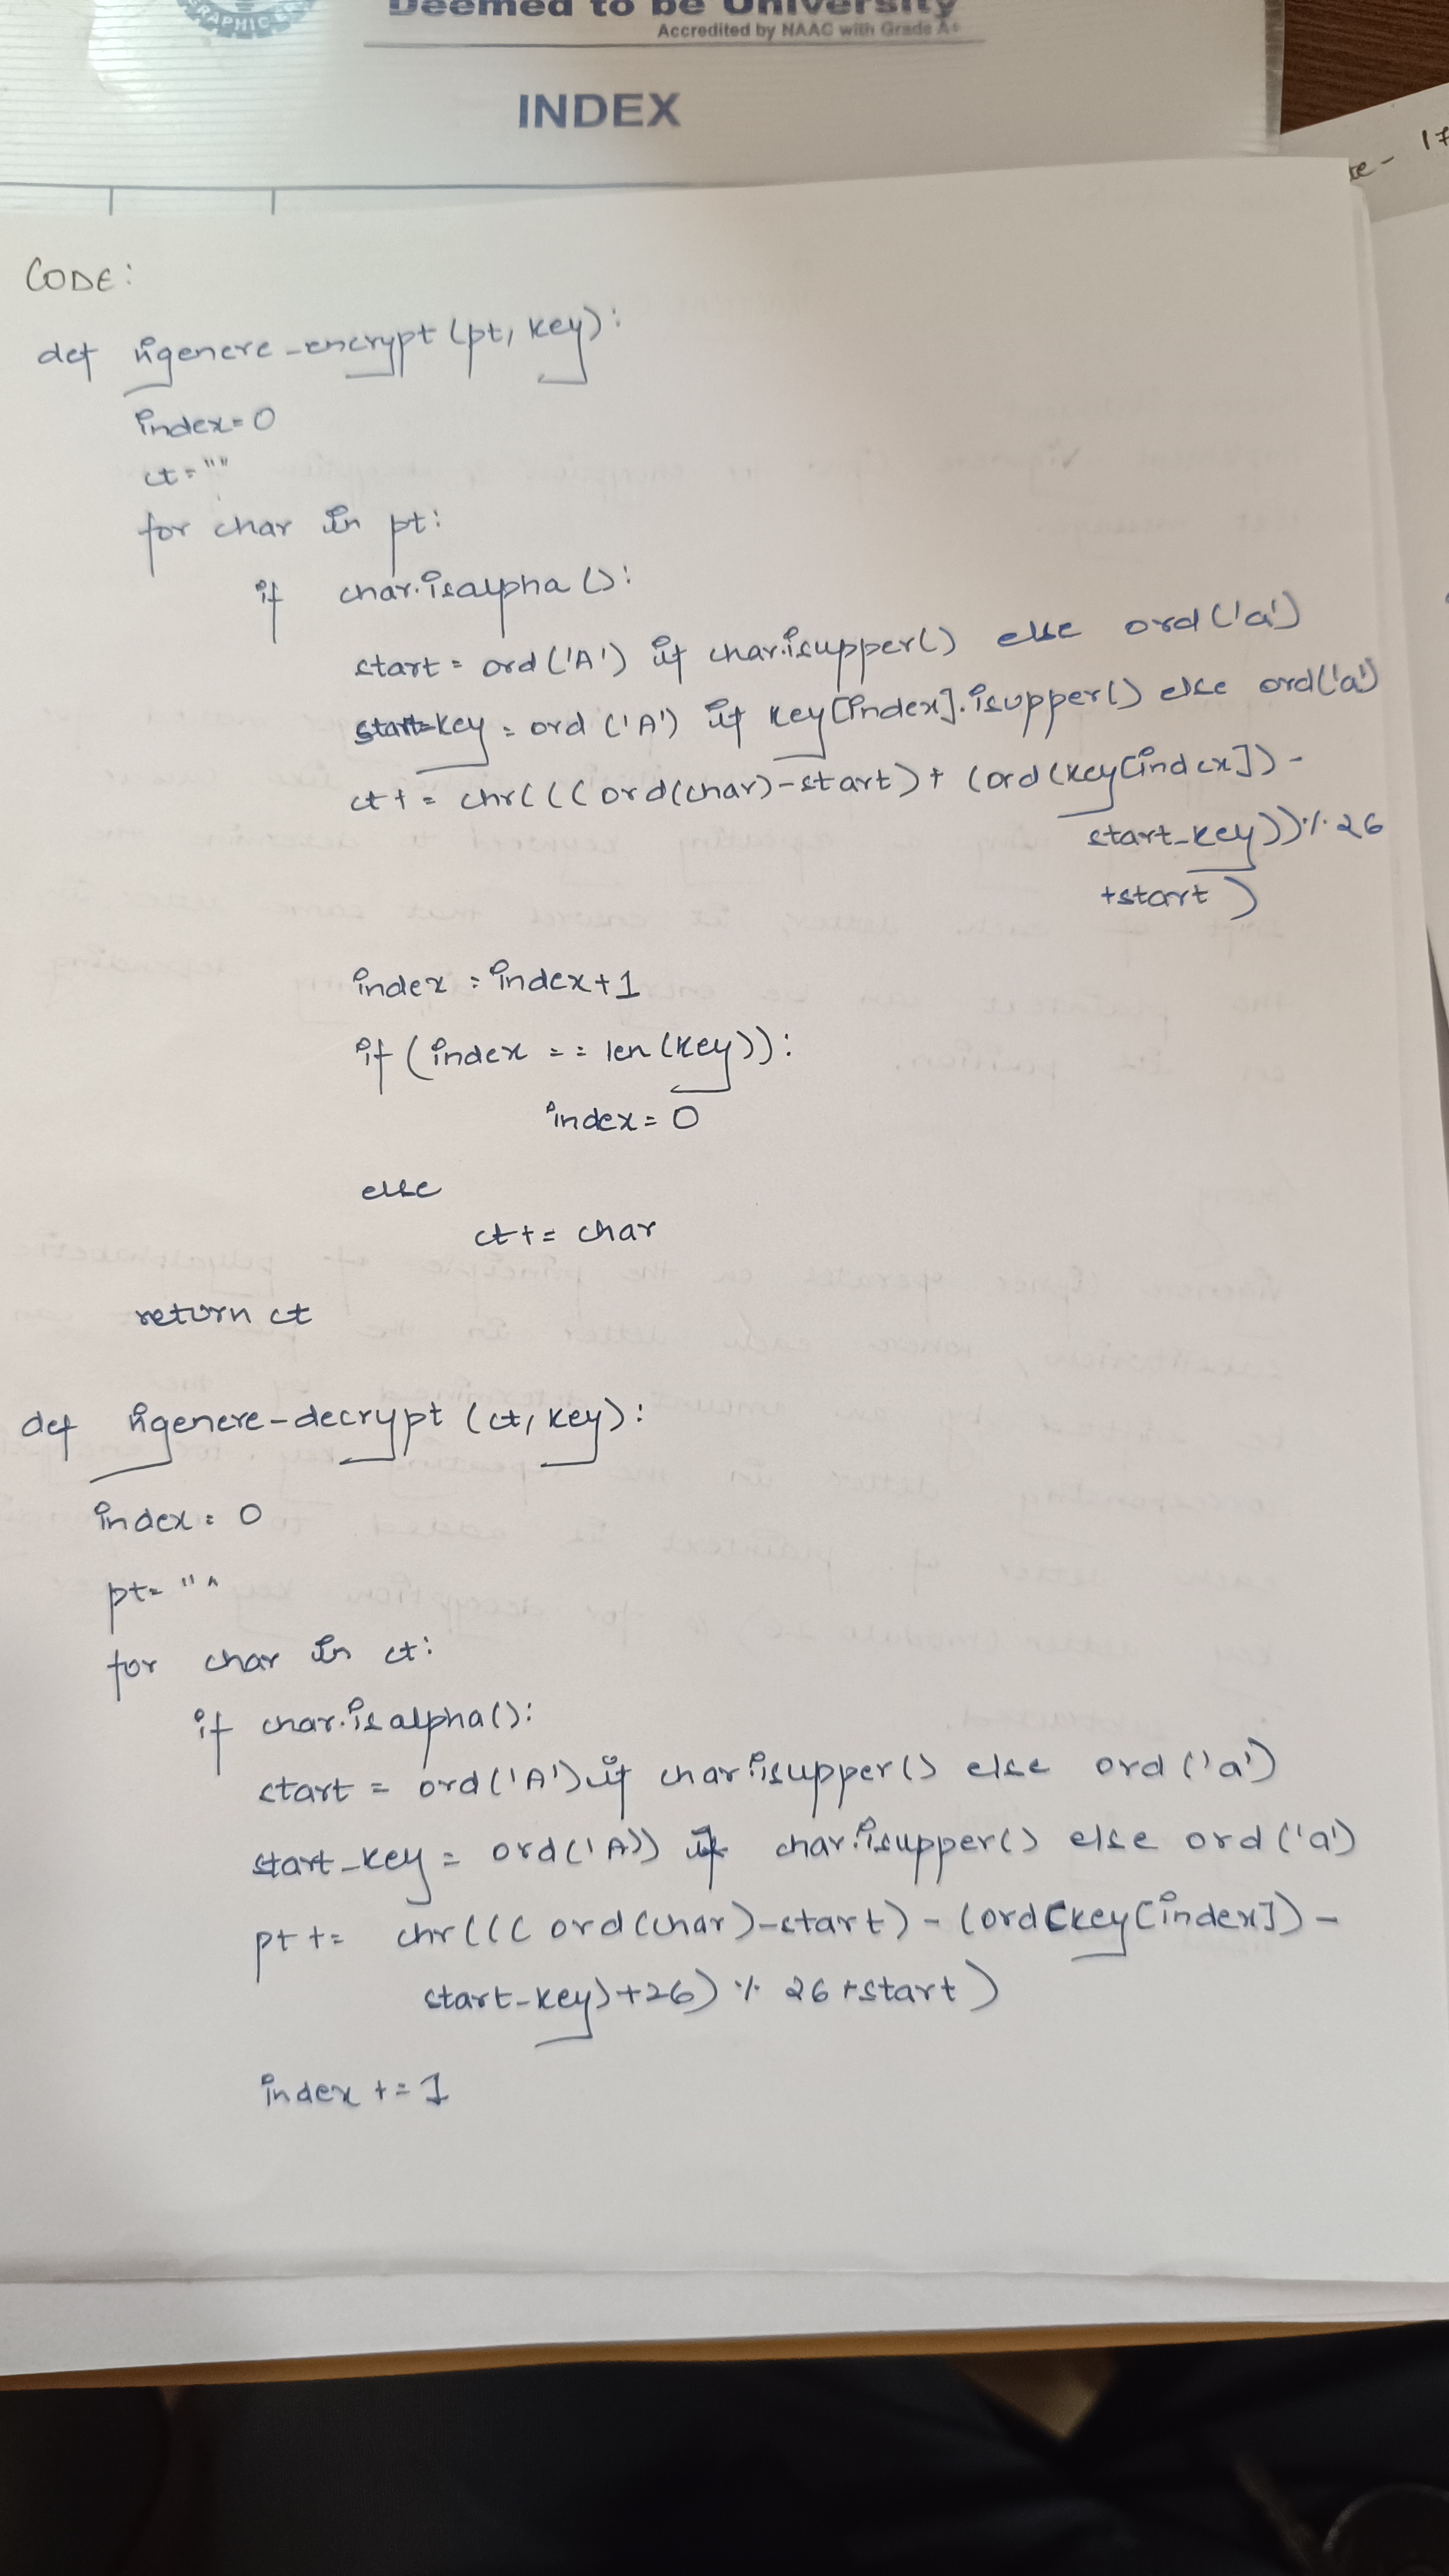 GRAPHIC ER
Deemed to be University
Accredited by NAAC with Grade A+
INDEX
17
CODE:
def vigenere-encrypt (pt, key):
index=0
ct=""
for char in pt:
if char.isalpha():
start = ord('A') if char.isupper() else ord('a')
start-key = ord('A') if key[index].isupper() else ord('a')
ct += chr(((ord(char)-start)+(ord(key[index])-
start_key))%26
+start)
index = index+1
if (index == len(key)):
index=0
else
ct+= char
return ct
def vigenere-decrypt (ct, key):
index = 0
pt= ""
for char in ct:
if char.isalpha():
start = ord('A') if char.isupper() else ord('a')
start_key = ord('A')) if char.isupper() else ord('a')
pt += chr(((ord(char)-start)-(ord(key[index])-
start-key)+26) % 26+start)
index += 1